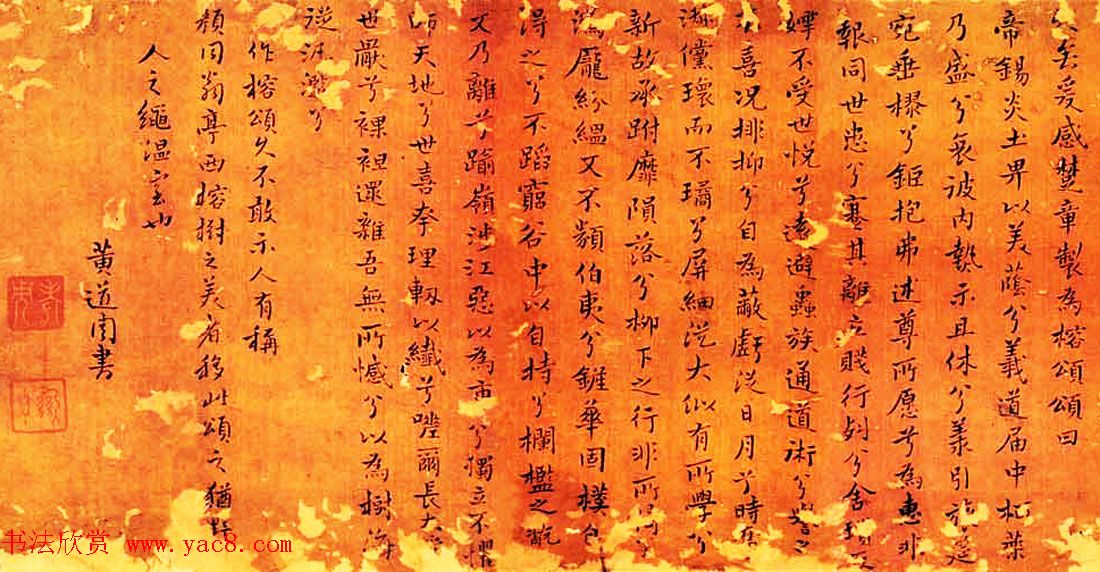 爰感楚章製為榕頌頌曰
帝錫炎土畀以美蔭兮義道届中柯葉
乃盛兮衺诐内埶示且休兮美引旅筵
宛垂樛兮鉅抱弗述尊所愿兮為惠非
艱同世患兮蹇其離立賤行列兮舍
嬅不受世悦兮遠避蟲族通道術兮
喜况排抑兮自為蔽虧從日月兮時
瓌而不璚兮屏細從大似有所學兮
新故承跗靡隕落兮柳下之行非所
龐紛緼又不類伯夷兮錐華固樸
得之兮不蹈窮谷中以自持兮欄檻之
又乃離兮踰嶺涉江惡以為市兮獨立不懼
師天地兮世喜奉理軔以纖兮嗟爾長大
世嚴兮裸裎還離吾無所憾兮以為樹
逆
作榕頌久不敢示人有稱
頖同翁亭西榕樹之美者移此頌之猶
人之繩温玄也
黄道周書
书法欣赏 www.yac8.com